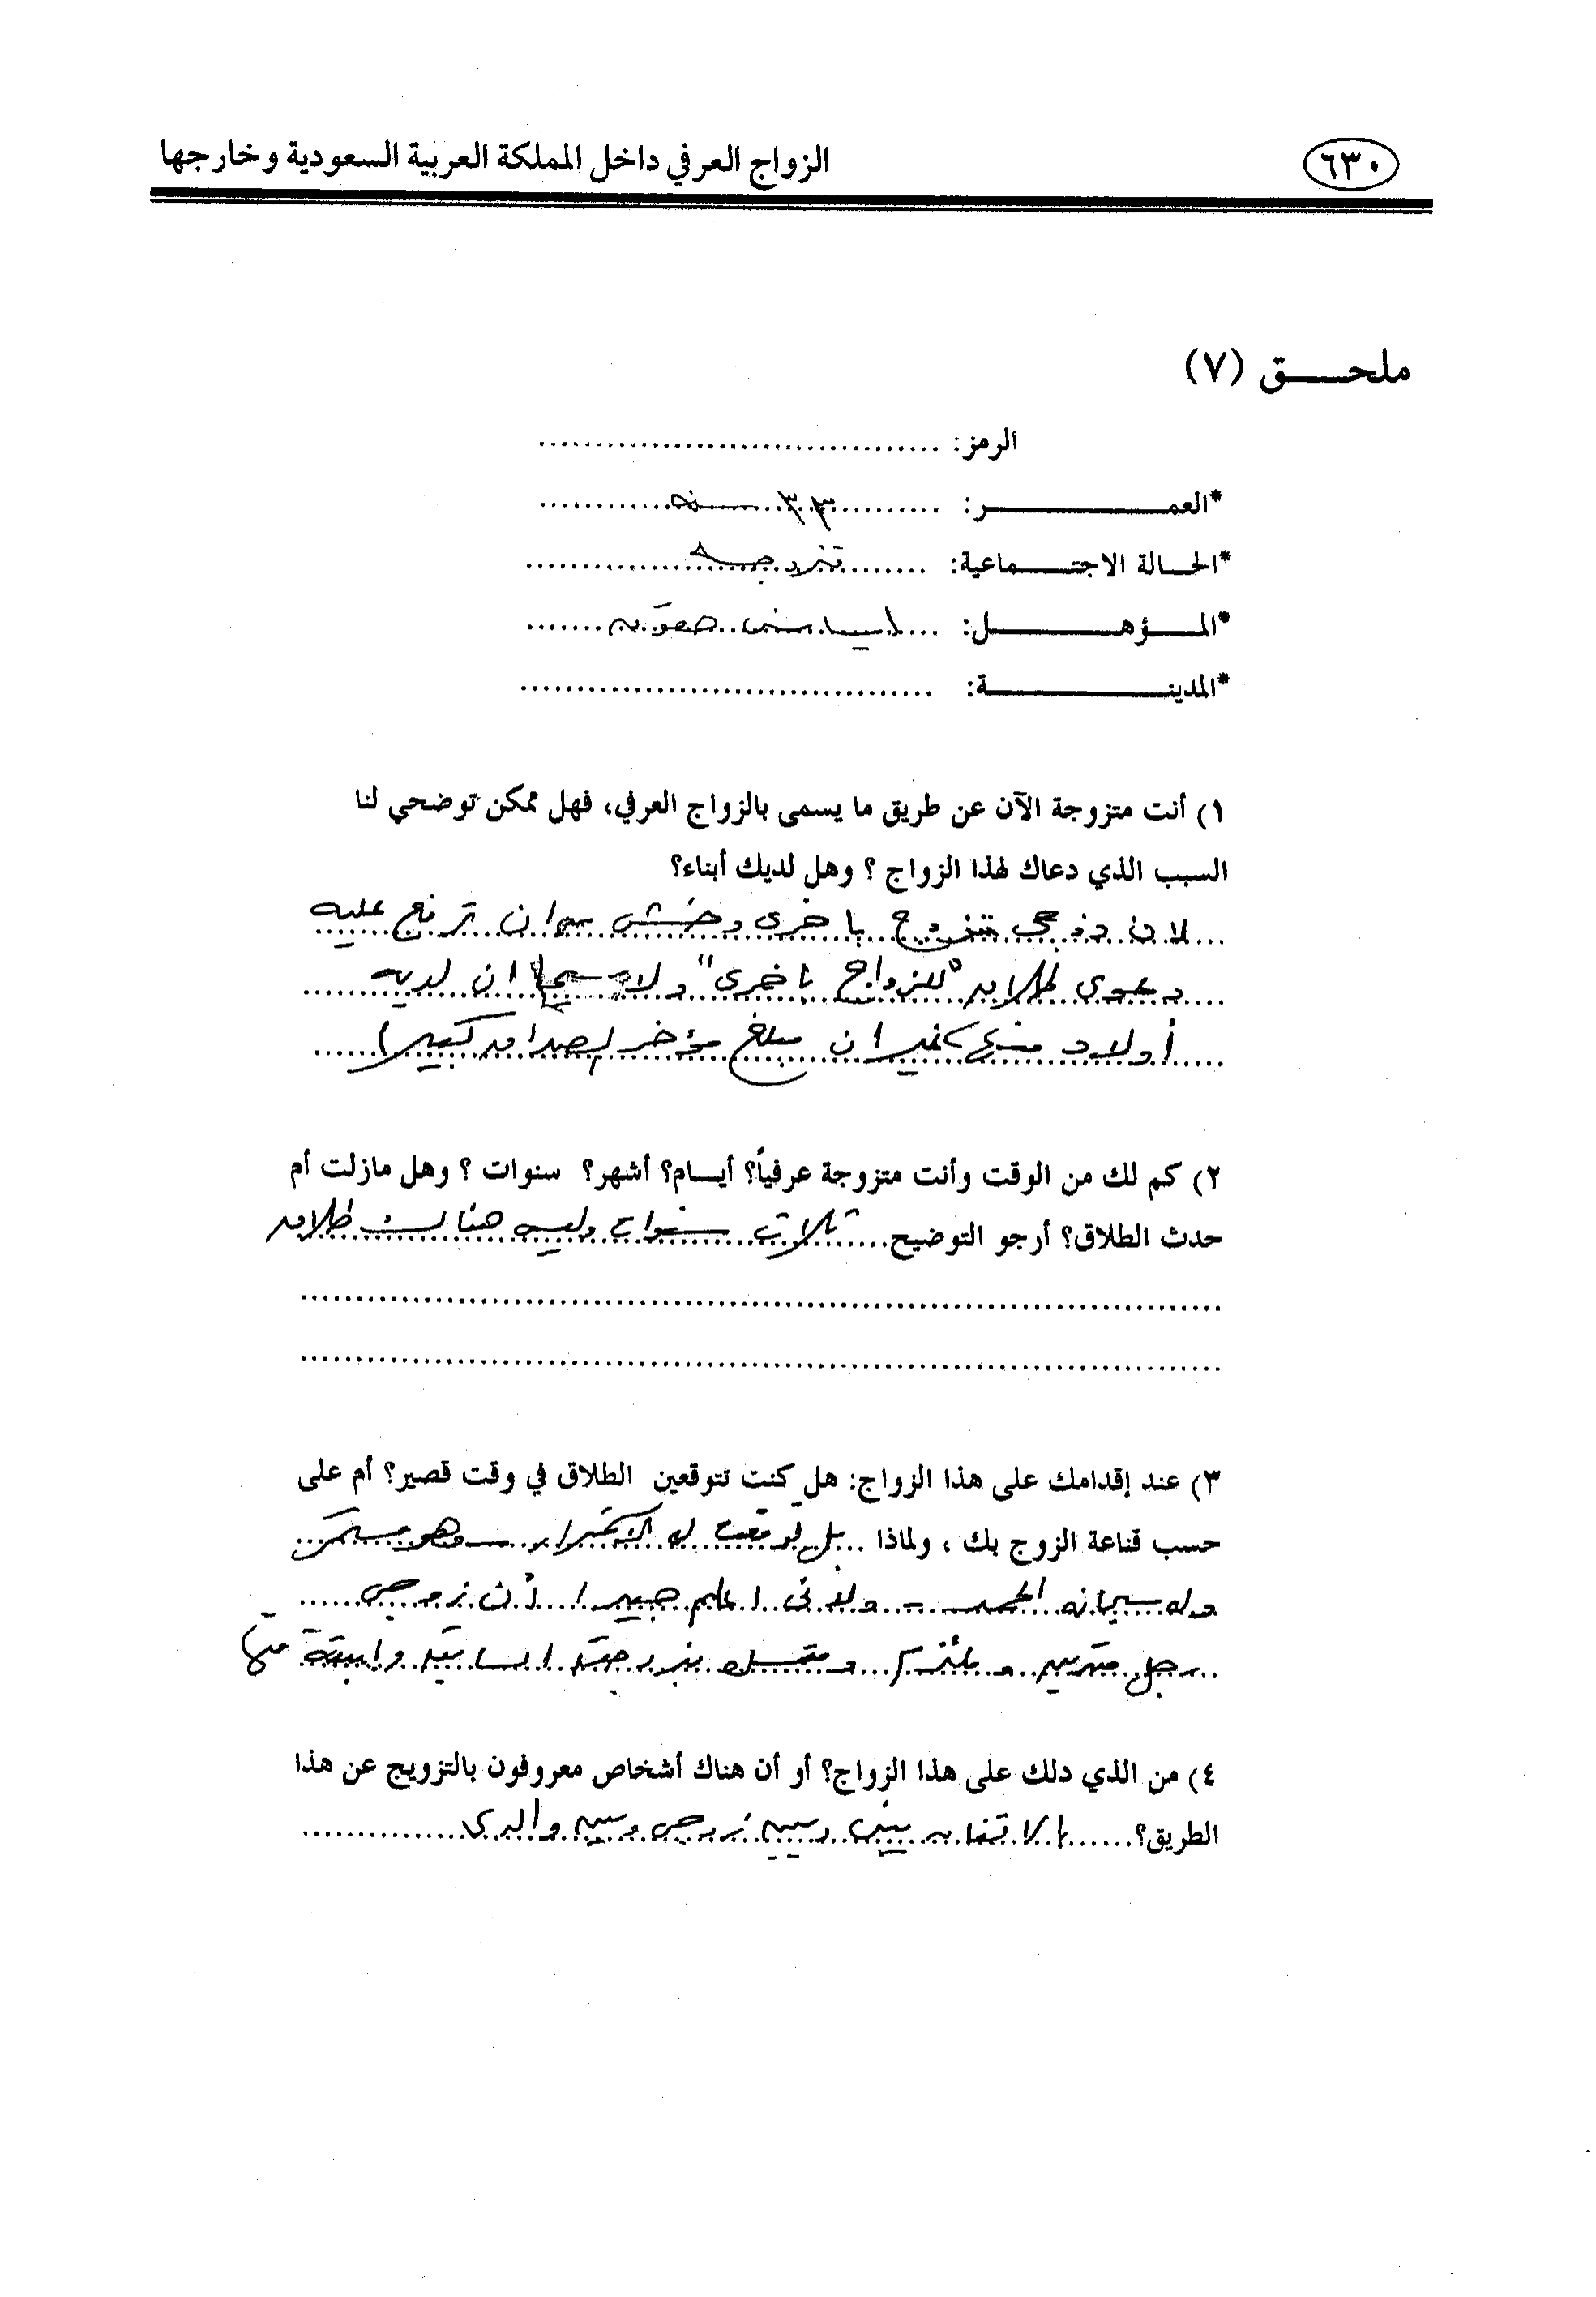 الزواج العرفي داخل المملكة العربية السعودية وخارجها
٦٣٠
ملحــق (٧)
الرمز: ....................................
*العمــــر: ٣٣ سنة
*الحالة الاجتــماعية: متزوجة
*المــؤهــل: ليسانس حقوق
*المدينـــة: ....................................
١) أنت متزوجة الآن عن طريق ما يسمى بالزواج العرفي، فهل ممكن توضحي لنا
السبب الذي دعاك لهذا الزواج ؟ وهل لديك أبناء؟
لان زوجي متزوج باخرى وخشى من ان ترفع عليه
دعوى طلاق "للزواج باخرى" ولا سيما ان لديه
أولاد منها غير ان مبلغ مؤخر الصداق كبيرا
٢) كم لك من الوقت وأنت متزوجة عرفياً؟ أيــام؟ أشهر؟ سنوات ؟ وهل مازلت أم
حدث الطلاق؟ أرجو التوضيح ثلاث سنوات وليس هنالك طلاق
٣) عند إقدامك على هذا الزواج: هل كنت تتوقعين الطلاق في وقت قصير؟ أم على
حسب قناعة الزوج بك ، ولماذا .. بل توقعت له الاستمرار وهو مستمر
وله سبحانه الحمد - ولانى اعلم جيدا أن زوجى
رجل متدين وملتزم ومتمسك بزوجته السابقة وابنته منها
٤) من الذي دلك على هذا الزواج؟ أو أن هناك أشخاص معروفون بالتزويج عن هذا
الطريق؟ بالاتفاق بينى وبين زوجى وبين والدى